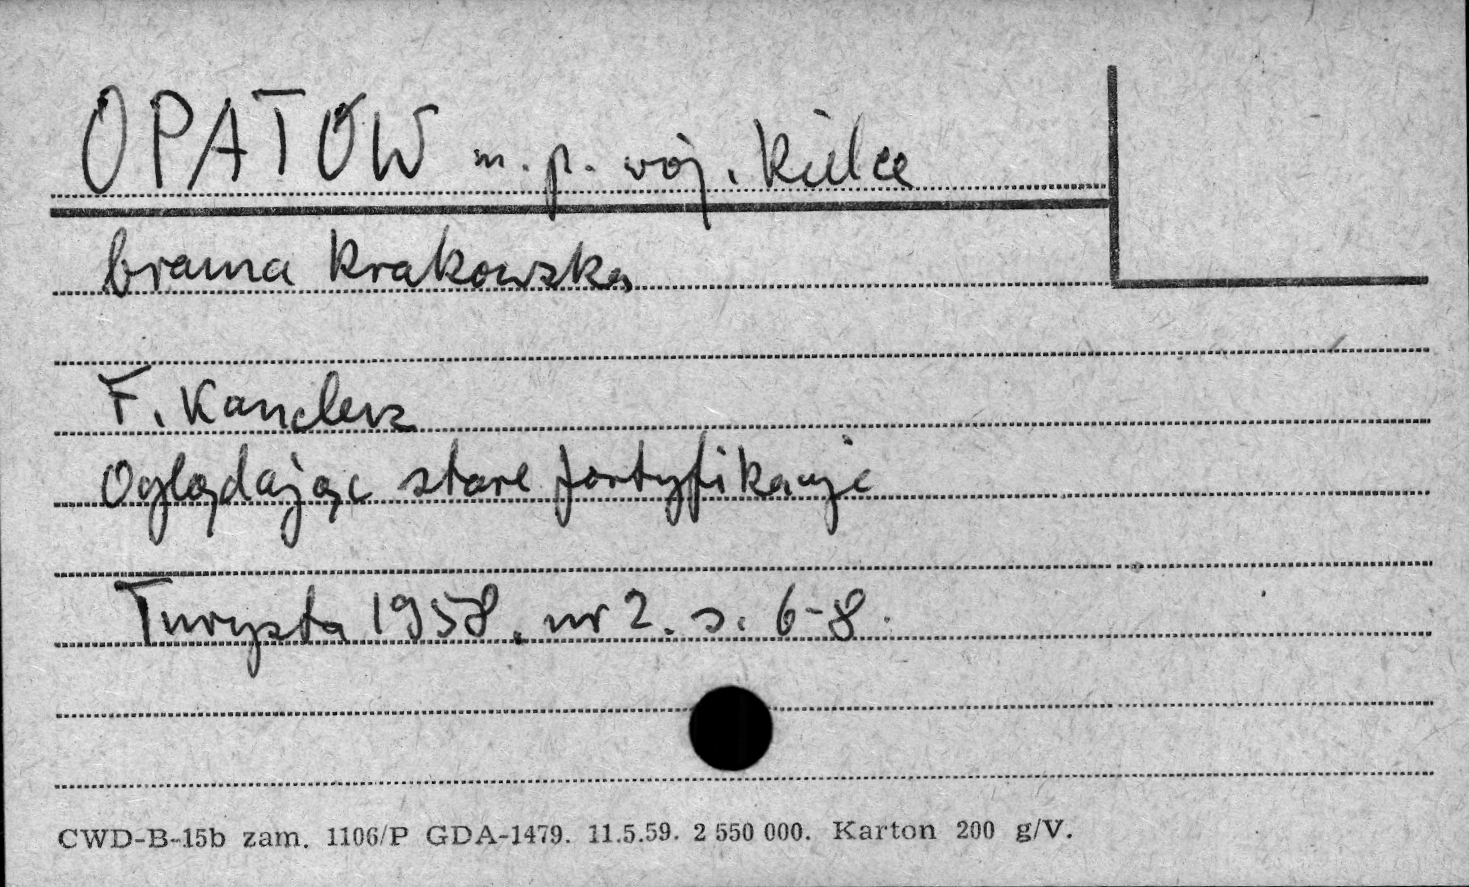 OPATÓW m. p. woj. Kielce
brama Krakowska
F. Kanclerz
Oglądając stare fortyfikacje
Turysta 1958. nr 2. s. 6-8.
CWD-B-15b zam. 1106/P GDA-1479. 11.5.59. 2 550 000. Karton 200 g/V.